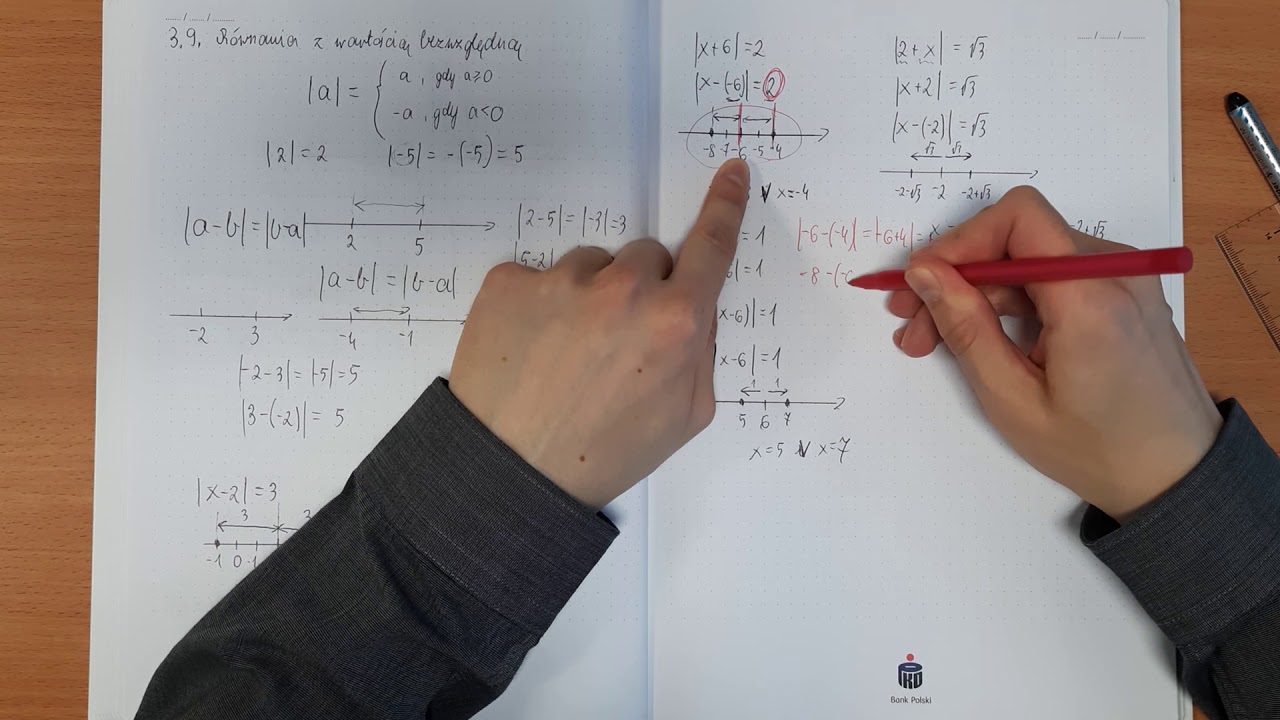 3.9. Równania z wartością bezwzględną
|a| = { a, gdy a≥0
-a, gdy a<0
|2| = 2 |-5| = -(-5) = 5
|a-b| = |b-a|
2 5
|2-5| = |-3| = 3
|5-2|
|a-b| = |b-a|
-2 3
-4 -1
|-2-3| = |-5| = 5
|3-(-2)| = 5
|x-2| = 3
3
-1 0 1
|x+6| = 2
|x-(-6)| = 2
-8 -7 -6 -5 -4
V x=-4
= 1
| = 1
x-6)| = 1
x-6| = 1
1 1
5 6 7
x=5 V x=7
|2+x| = √3
|x+2| = √3
|x-(-2)| = √3
√3 √3
-2-√3 -2 -2+√3
|-6-(-4)| = |-6+4| =
-2+√3
-8-(-
Bank Polski